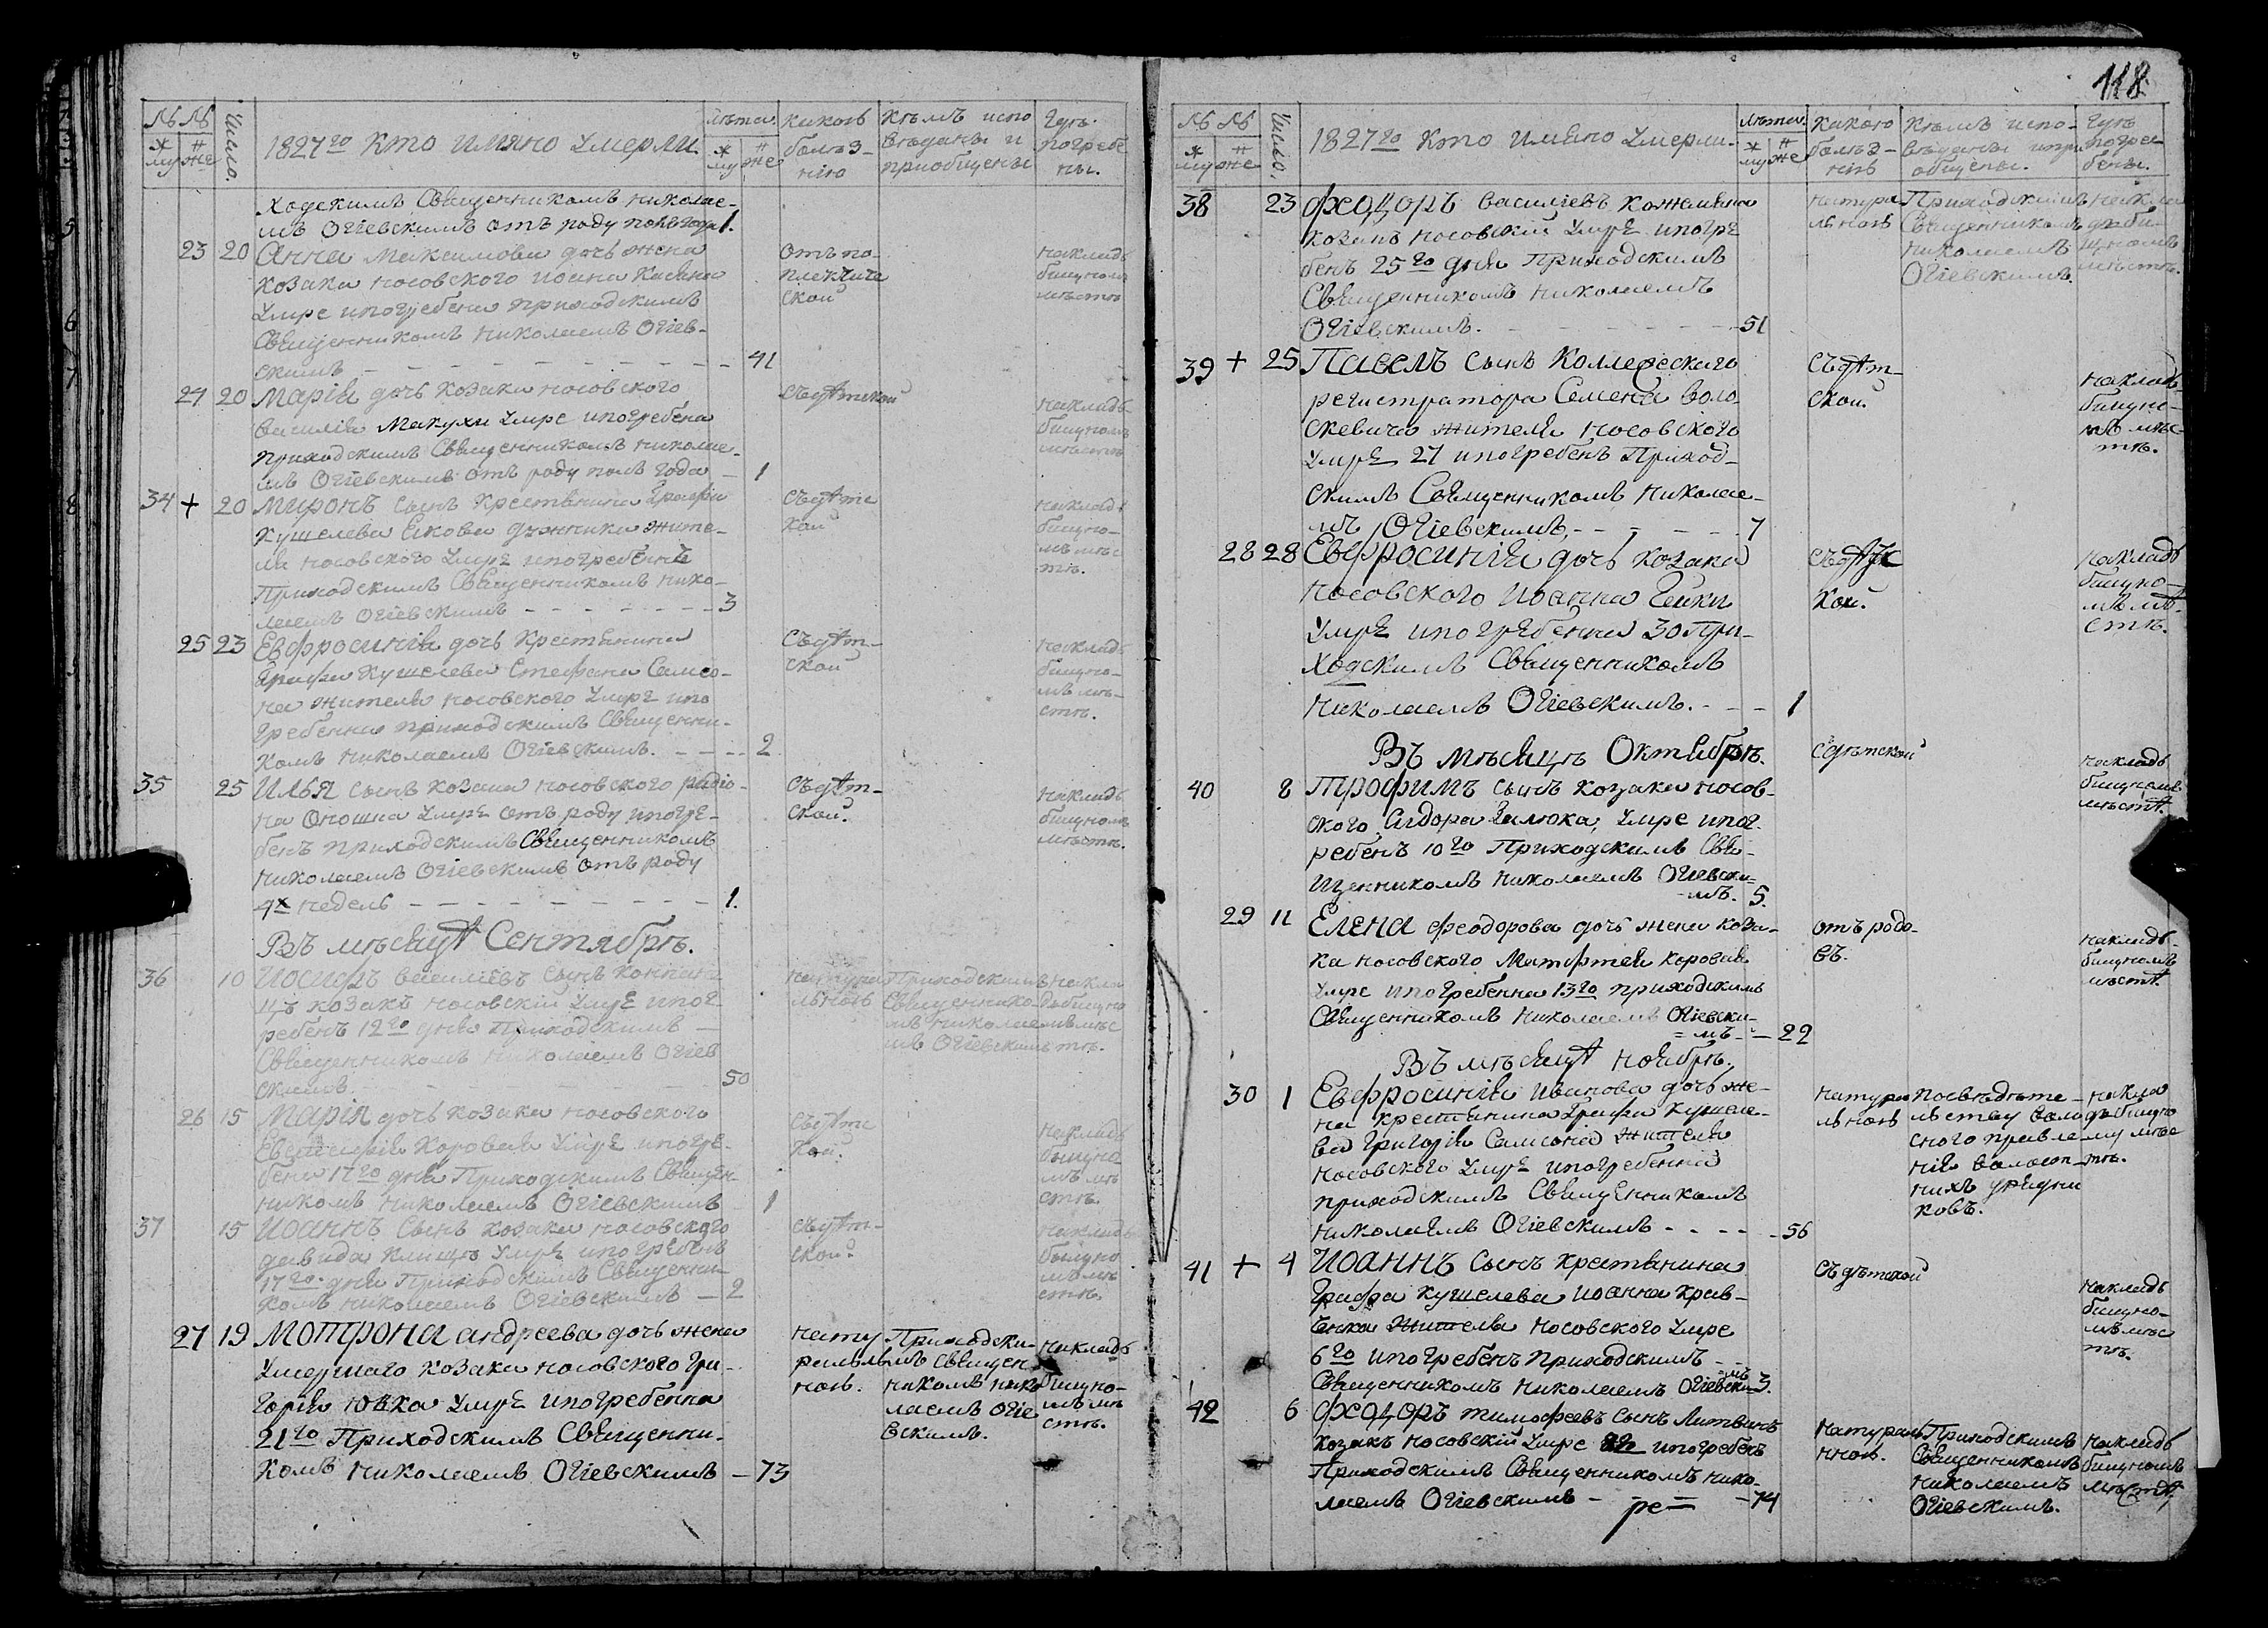 118
№ № Число. 1827го Кто имяно Умерли. лѣта. какою болѣзнію Кѣмъ исповѣданы и пріобщены Гдѣ погребены.
муж же муж же
ходскимъ Священникомъ Николае-
мъ Огіевскимъ отъ роду полъ года 1.
23 20 Анна Максимова дочь жена
козака носовского
Умре и погребена приходскимъ
Священникомъ Николаемъ Огіев-
скимъ 41
на кладбищномъ мѣстѣ
24 20 Марія дочь козака носовского
Василія Макухи Умре и погребена
приходскимъ Священникомъ Николае-
мъ Огіевскимъ отъ роду полъ года 1
съдѣтской
на кладбищномъ мѣстѣ
34 + 20 Миронъ сынъ крестянина Графа
Кушелева жите-
ля носовского Умре и погребенъ
Приходскимъ Священникомъ Нико-
лаемъ Огіевскимъ 3
съдѣтской
на кладбищномъ мѣстѣ.
25 23 Евфросинія дочь крестянина
Графа Кушелева Стефана Самсо-
на жителя носовского Умре и по
гребенна приходскимъ Священни-
комъ Николаемъ Огіевскимъ. 2
съдѣтской
на кладбищномъ мѣстѣ.
35 25 Илья сынъ козака носовского Радіо-
на Оношка Умре отъ роду и погре-
бенъ приходскимъ Священникомъ
Николаемъ Огіевскимъ отъ роду
4х недель 1.
съдѣтской.
на кладбищномъ мѣстѣ.
Въ мѣсяцѣ Сентябрѣ.
36 10 Иосифъ Василіевъ сынъ
козакъ носовскій Умре и пог-
ребенъ 12го дня Приходскимъ
Священникомъ Николаемъ Огіев
скимъ. 50
натуральною
Приходскимъ Священникомъ Николаемъ Огіевскимъ
на кладбищномъ мѣстѣ.
26 15 Марія дочь козака носовского
Коровая Умре и погре-
бена 17го дня Приходскимъ Священ-
никомъ Николаемъ Огіевскимъ 1
съдѣтской.
на кладбищномъ мѣстѣ.
37 15 Иоаннъ сынъ козака носовского
Давида Умре и погребенъ
17го дня Приходскимъ Священни-
комъ Николаемъ Огіевскимъ 2
съдѣтской.
на кладбищномъ мѣстѣ.
27 19 Мотрона Андреева дочь жена
Умершаго козака носовского Гри-
горія Ювка Умре и погребенна
21го Приходскимъ Священни-
комъ Николаемъ Огіевскимъ 73
натуральною.
Приходскимъ Священникомъ Николаемъ Огіевскимъ.
на кладбищномъ мѣстѣ.
№ № Число. 1827го Кто имяно Умерли. лѣта. какою болѣзнію Кѣмъ исповѣданы и пріобщены. Гдѣ погребены.
муж же муж же
38 23 Феодоръ Василіевъ
козакъ носовскій Умре и погре
бенъ 25го дня Приходскимъ
Священникомъ Николаемъ
Огіевскимъ. 51
натуральною
Приходскимъ Священникомъ Николаемъ Огіевскимъ.
на кладбищномъ мѣстѣ.
39 + 25 Павелъ сынъ Коллежескаго
регистратора Семена Воло-
скевича жителя носовского
Умре 27 и погребенъ Приход-
скимъ Священникомъ Николае-
мъ Огіевскимъ, 7
съдѣтской.
на кладбищномъ мѣстѣ.
28 28 Евфросинія дочь козака
носовского Иоанна
Умре и погребенна 30 При-
ходскимъ Священникомъ
Николаемъ Огіевскимъ. 1
съдѣтской.
на кладбищномъ мѣстѣ.
Въ мѣсяцѣ Октябрѣ.
40 8 Трофимъ сынъ козака носов-
ского Сидора Галюка, Умре и пог-
ребенъ 10го Приходскимъ Свя-
щенникомъ Николаемъ Огіевски-
мъ. 5.
сдѣтской
на кладбищномъ мѣстѣ.
29 11 Елена Феодорова дочь жена коза-
ка носовского Матфея Коровая
Умре и погребенна 13го приходскимъ
Священникомъ Николаемъ Огіевски-
мъ 22
отъ родовъ.
на кладбищномъ мѣстѣ.
Въ мѣсяцѣ Ноябрѣ.
30 1 Евфросинія Иванова дочь же-
на крестянина Графа Кушеле-
ва Григорія Самсона жителя
носовского Умре и погребенна
приходскимъ Священникомъ
Николаемъ Огіевскимъ 56
натуральною
по свѣдѣтельству
на кладбищному мѣстѣ.
41 + 4 Иоаннъ сынъ крестянина
Графа Кушелева Иоанна Крав-
ченка жителя носовского Умре
6го и погребенъ приходскимъ
Священникомъ Николаемъ Огіевскимъ 3.
съдѣтской
на кладбищномъ мѣстѣ.
42 6 Феодоръ Тимофеевъ сынъ Литвинъ
козакъ носовскій Умре 8го и погребенъ
Приходскимъ Священникомъ Нико-
лаемъ Огіевскимъ 74
натуральнною.
Приходскимъ Священникомъ Николаемъ Огіевскимъ.
на кладбищномъ мѣстѣ,
ре